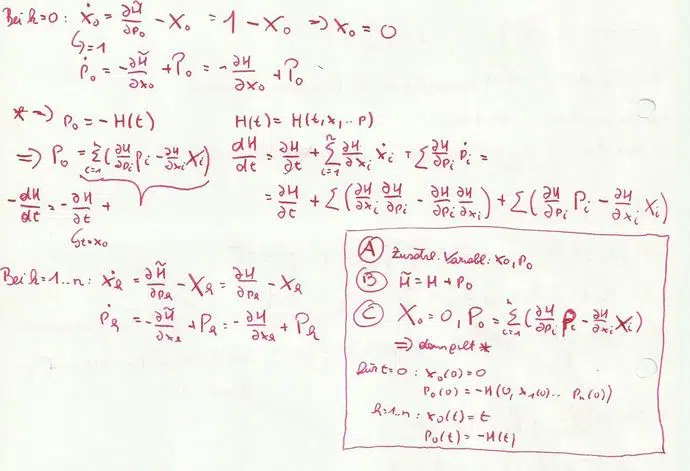 Bei k=0: ẋ₀ = ∂H̃/∂p₀ - X₀ = 1 - X₀ ⇒ X₀ = 0
↳ =1
ṗ₀ = -∂H̃/∂x₀ + P₀ = -∂H/∂x₀ + P₀
* ⇒ p₀ = -H(t)
H(t) = H(t, x, .. p)
⇒ P₀ = Σ_{i=1}^{n} (∂H/∂p_i P_i - ∂H/∂x_i X_i)
dH/dt = ∂H/∂t + Σ_{i=1}^{n} ∂H/∂x_i ẋ_i + Σ ∂H/∂p_i ṗ_i =
-dH/dt = -∂H/∂t +
↳ t=x₀
= ∂H/∂t + Σ (∂H/∂x_i ∂H/∂p_i - ∂H/∂p_i ∂H/∂x_i) + Σ (∂H/∂p_i P_i - ∂H/∂x_i X_i)
Bei k=1..n: ẋ_k = ∂H̃/∂p_k - X_k = ∂H/∂p_k - X_k
ṗ_k = -∂H̃/∂x_k + P_k = -∂H/∂x_k + P_k
Ⓐ Zusätzl. Variabl.: x₀, p₀
Ⓑ H̃ = H + p₀
Ⓒ X₀ = 0, P₀ = Σ_{i=1}^{n} (∂H/∂p_i P_i - ∂H/∂x_i X_i)
⇒ dann gilt *
für t=0: x₀(0) = 0
p₀(0) = -H(0, x₁(0) .. p_n(0))
k=1..n: x₀(t) = t
p₀(t) = -H(t)